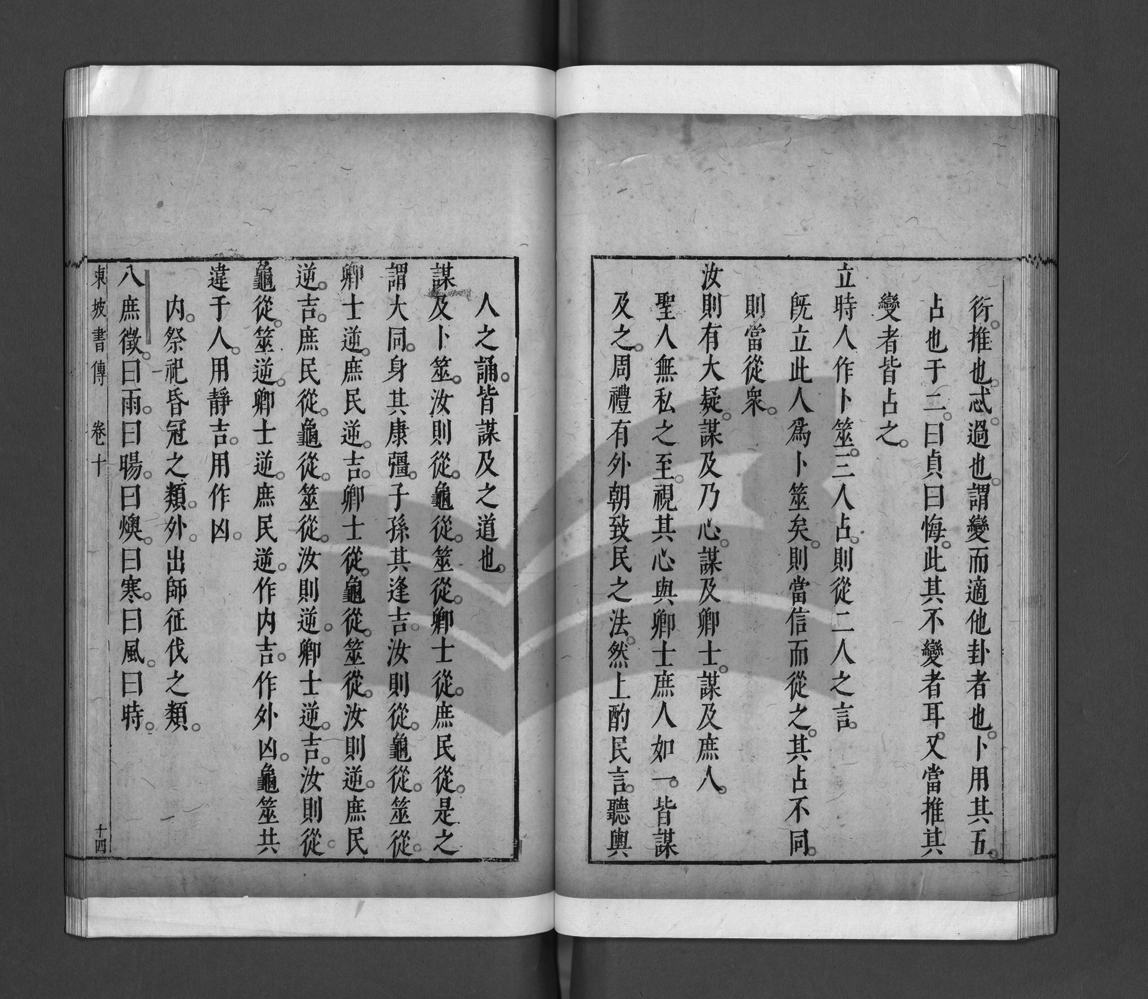 衍。推也。忒。過也。謂變而適他卦者也。卜用其五。
占也于二。曰貞曰悔。此其不變者耳。又當推其
變者皆占之。
立時人作卜筮。三人占。則從二人之言。
既立此人爲卜筮矣。則當信而從之。其占不同。
則當從衆。
汝則有大疑。謀及乃心。謀及卿士。謀及庶人。
聖人無私之至。視其心與卿士庶人如一。皆謀
及之。周禮有外朝致民之法。然上酌民言。聽輿
人之誦。皆謀及之道也。
謀及卜筮。汝則從。龜從。筮從。卿士從。庶民從。是之
謂大同。身其康彊。子孫其逢吉。汝則從。龜從。筮從。
卿士逆。庶民逆。吉。卿士從。龜從。筮從。汝則逆。庶民
逆。吉。庶民從。龜從。筮從。汝則逆。卿士逆。吉。汝則從。
龜從。筮逆。卿士逆。庶民逆。作内吉。作外凶。龜筮共
違于人。用靜吉。用作凶。
内。祭祀昏冠之類。外。出師征伐之類。
八庶徵。曰雨。曰暘。曰燠。曰寒。曰風。曰時。
東坡書傳 卷十 十四